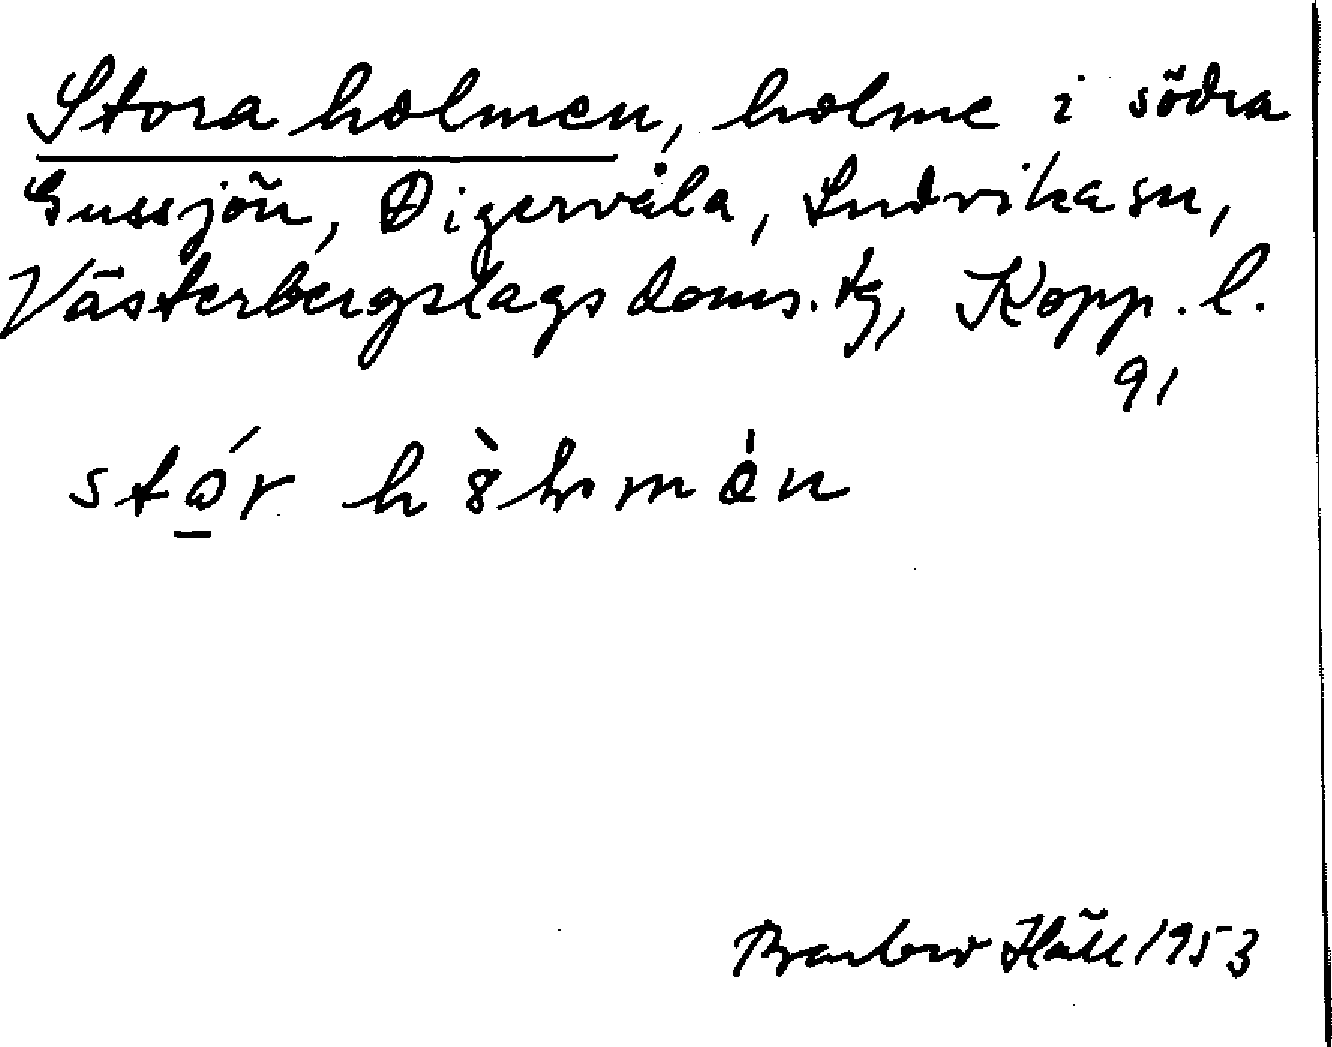 Stora holmen, holme i södra
Gussjön, Digervåla, Ludvika sn,
Västerbergslags doms. tg, Kopp. l.
91
Barbro Häll 1953